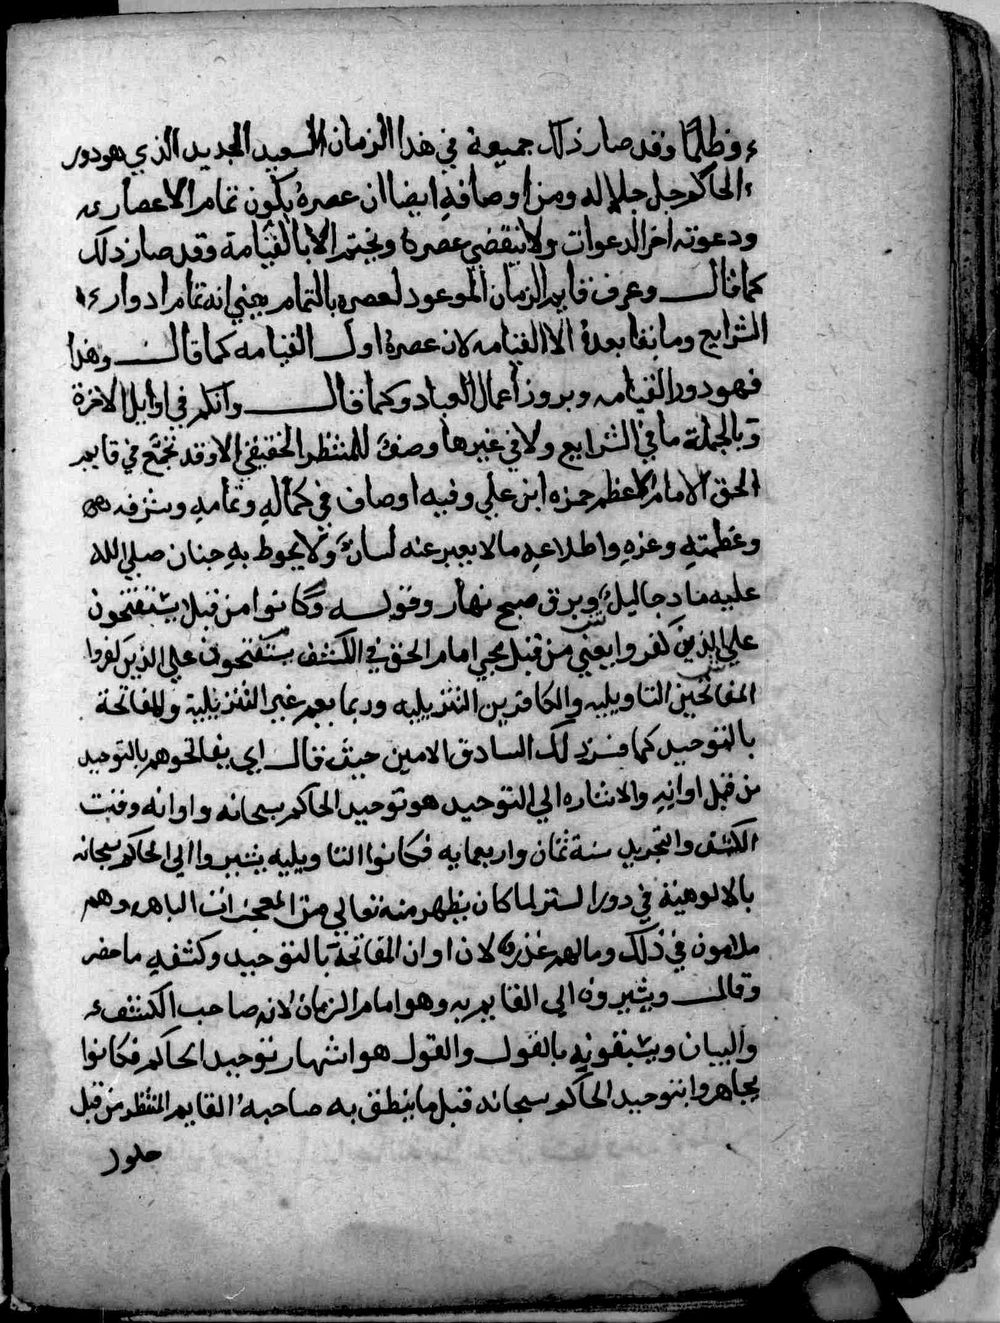 وظلما وقد صار ذلك جميعه في هذا الزمان السعيد الجديد الذي هو دور
الحاكم جل جلاله ومن اوصافه ايضا ان عصره يكون تمام الاعصار
ودعوته اخر الدعوات ولا ينقضي عصره ويختم الا بالقيامة وقد صار ذلك
كما قال وعرف قايم الزمان الموعود لعصره بالتمام يعني انه تمام ادوار
الشرايع وما بقا بعده الا القيامه لان عصره اول القيامه كما قال وهذا
فهو دور القيامه وبروز اعمال العباد وكما قال وانكم في اوايل الاخرة
وبالجملة ما في الشرايع ولا في غيرها وصف للمنتظر الحقيقي الا وقد تجمع في قايم
الحق الامام الاعظم حمزه ابن علي وفيه اوصاف في كماله وتمامه وشرفه
وعظمته وعزه واطلاعه ما لا يعبر عنه لسان ولا يحوط به جنان صلى الله
عليه ما دجا ليل وبرق صبح نهار وقوله وكانوا من قبل يستفتحون
على الذين كفروا يعني من قبل مجي امام الحق في الكشف يستفتحون على الذين كفروا
المفاتحين التاويليه والكافرين التنزيليه وربما يعم غير التنزيلية والمفاتحة
بالتوحيد كما فسر ذلك السادق الامين حيث قال اي يفاتحوهم بالتوحيد
من قبل اوانه والاشاره الى التوحيد هو توحيد الحاكم سبحانه واوانه وقت
الكشف والتجريد سنة ثمان واربعمايه فكانوا التاويليه يشيروا الى الحاكم سبحانه
بالالوهية في دور الستر لما كان يظهر منه تعالى من المعجزات الباهره وهم
ملامون في ذلك وما لهم عذر لان اوان المفاتحة بالتوحيد وكشفه ما حضر
وقال ويشيرون الى القايم به وهو امام الزمان لانه صاحب الكشف
والبيان ويسبقونه بالقول والقول هو اشهار توحيد الحاكم فكانوا
يجاهروا بتوحيد الحاكم سبحانه قبل ما ينطق به صاحبه القايم المنتظر من قبل
حلور